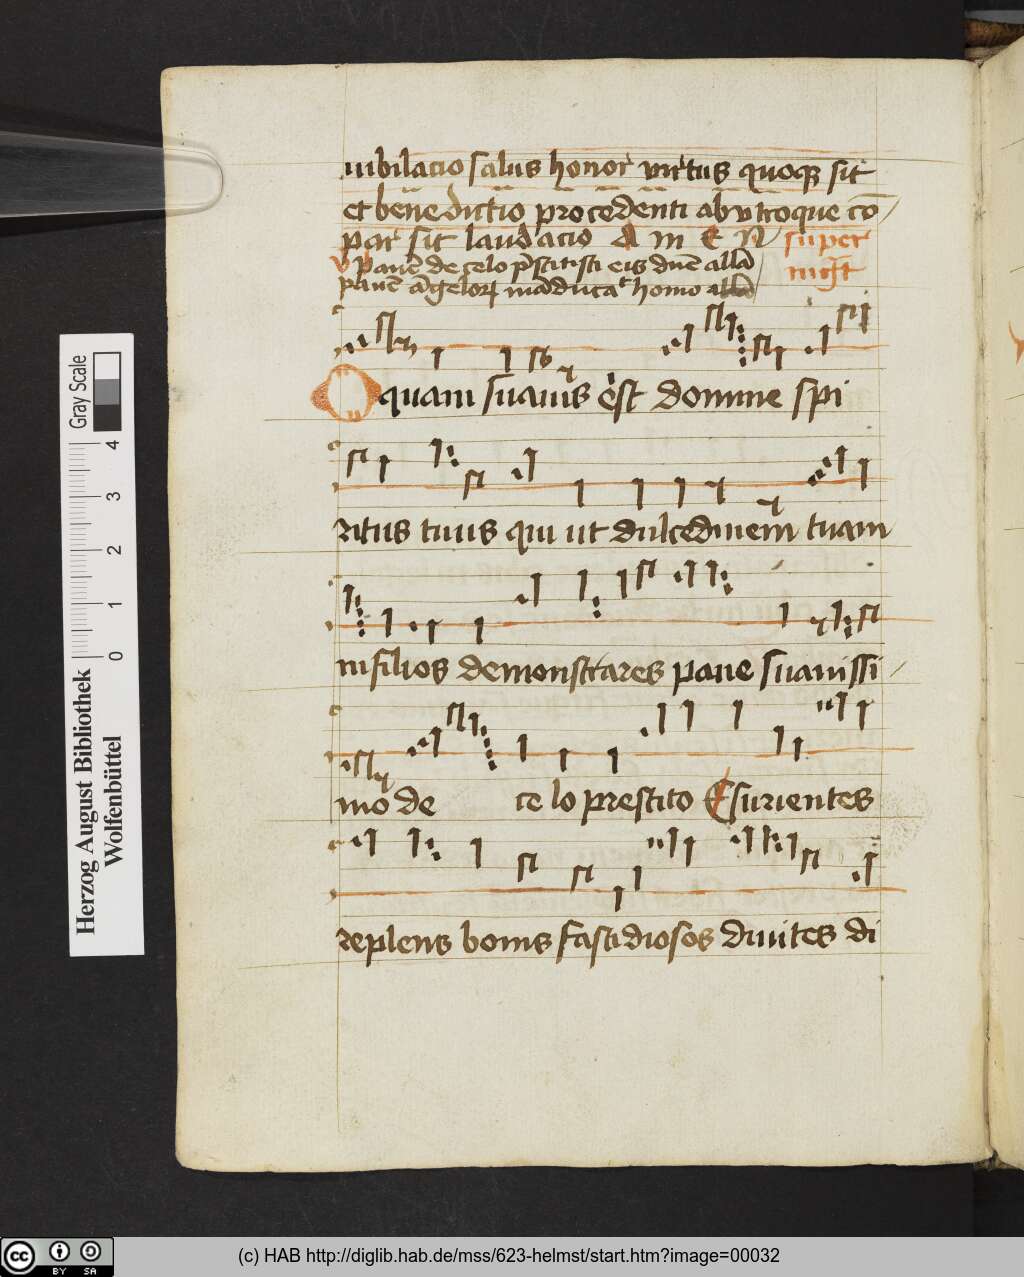 iubilacio salus honor virtus quoqꝫ sit
et benedictio procedenti ab vtroque cō
par sit laudacio A m E N super
V Panē de celo p̄stitisti eis dn̄e alla mgͣt
panē āgeloꝝ māducaᵗ homo alla
O quam suauis est domine spi
ritus tuus qui ut dulcedinem tuam
in filios demonstrares pane suauissi
mo de ce lo prestito Esurientes
replens bonis fastidiosos diuites di
Gray Scale
Herzog August Bibliothek
Wolfenbüttel
0 1 2 3 4
cc BY SA
(c) HAB http://diglib.hab.de/mss/623-helmst/start.htm?image=00032